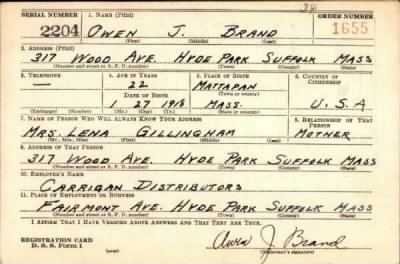 34
SERIAL NUMBER 1. NAME (Print) ORDER NUMBER
2204 OWEN J. BRAND 1655
(First) (Middle) (Last)
2. ADDRESS (Print)
317 WOOD AVE. HYDE PARK SUFFOLK MASS
(Number and street or R. F. D. number) (Town) (County) (State)
3. TELEPHONE 4. AGE IN YEARS 5. PLACE OF BIRTH 6. COUNTRY OF CITIZENSHIP
— 22 MATTAPAN
DATE OF BIRTH (Town or county)
1 27 1918 MASS. U. S. A
(Exchange) (Number) (Mo.) (Day) (Yr.) (State or country)
7. NAME OF PERSON WHO WILL ALWAYS KNOW YOUR ADDRESS 8. RELATIONSHIP OF THAT PERSON
MRS. LENA GILLINGHAM MOTHER
(Mr., Mrs., Miss) (First) (Middle) (Last)
9. ADDRESS OF THAT PERSON
317 WOOD AVE. HYDE PARK SUFFOLK MASS
(Number and street or R. F. D. number) (Town) (County) (State)
10. EMPLOYER'S NAME
CARRIGAN DISTRIBUTORS
11. PLACE OF EMPLOYMENT OR BUSINESS
FAIRMONT AVE. HYDE PARK SUFFOLK MASS
(Number and street or R. F. D. number) (Town) (County) (State)
I AFFIRM THAT I HAVE VERIFIED ABOVE ANSWERS AND THAT THEY ARE TRUE.
REGISTRATION CARD
D. S. S. Form 1 (over) Owen J. Brand
(Registrant's signature)